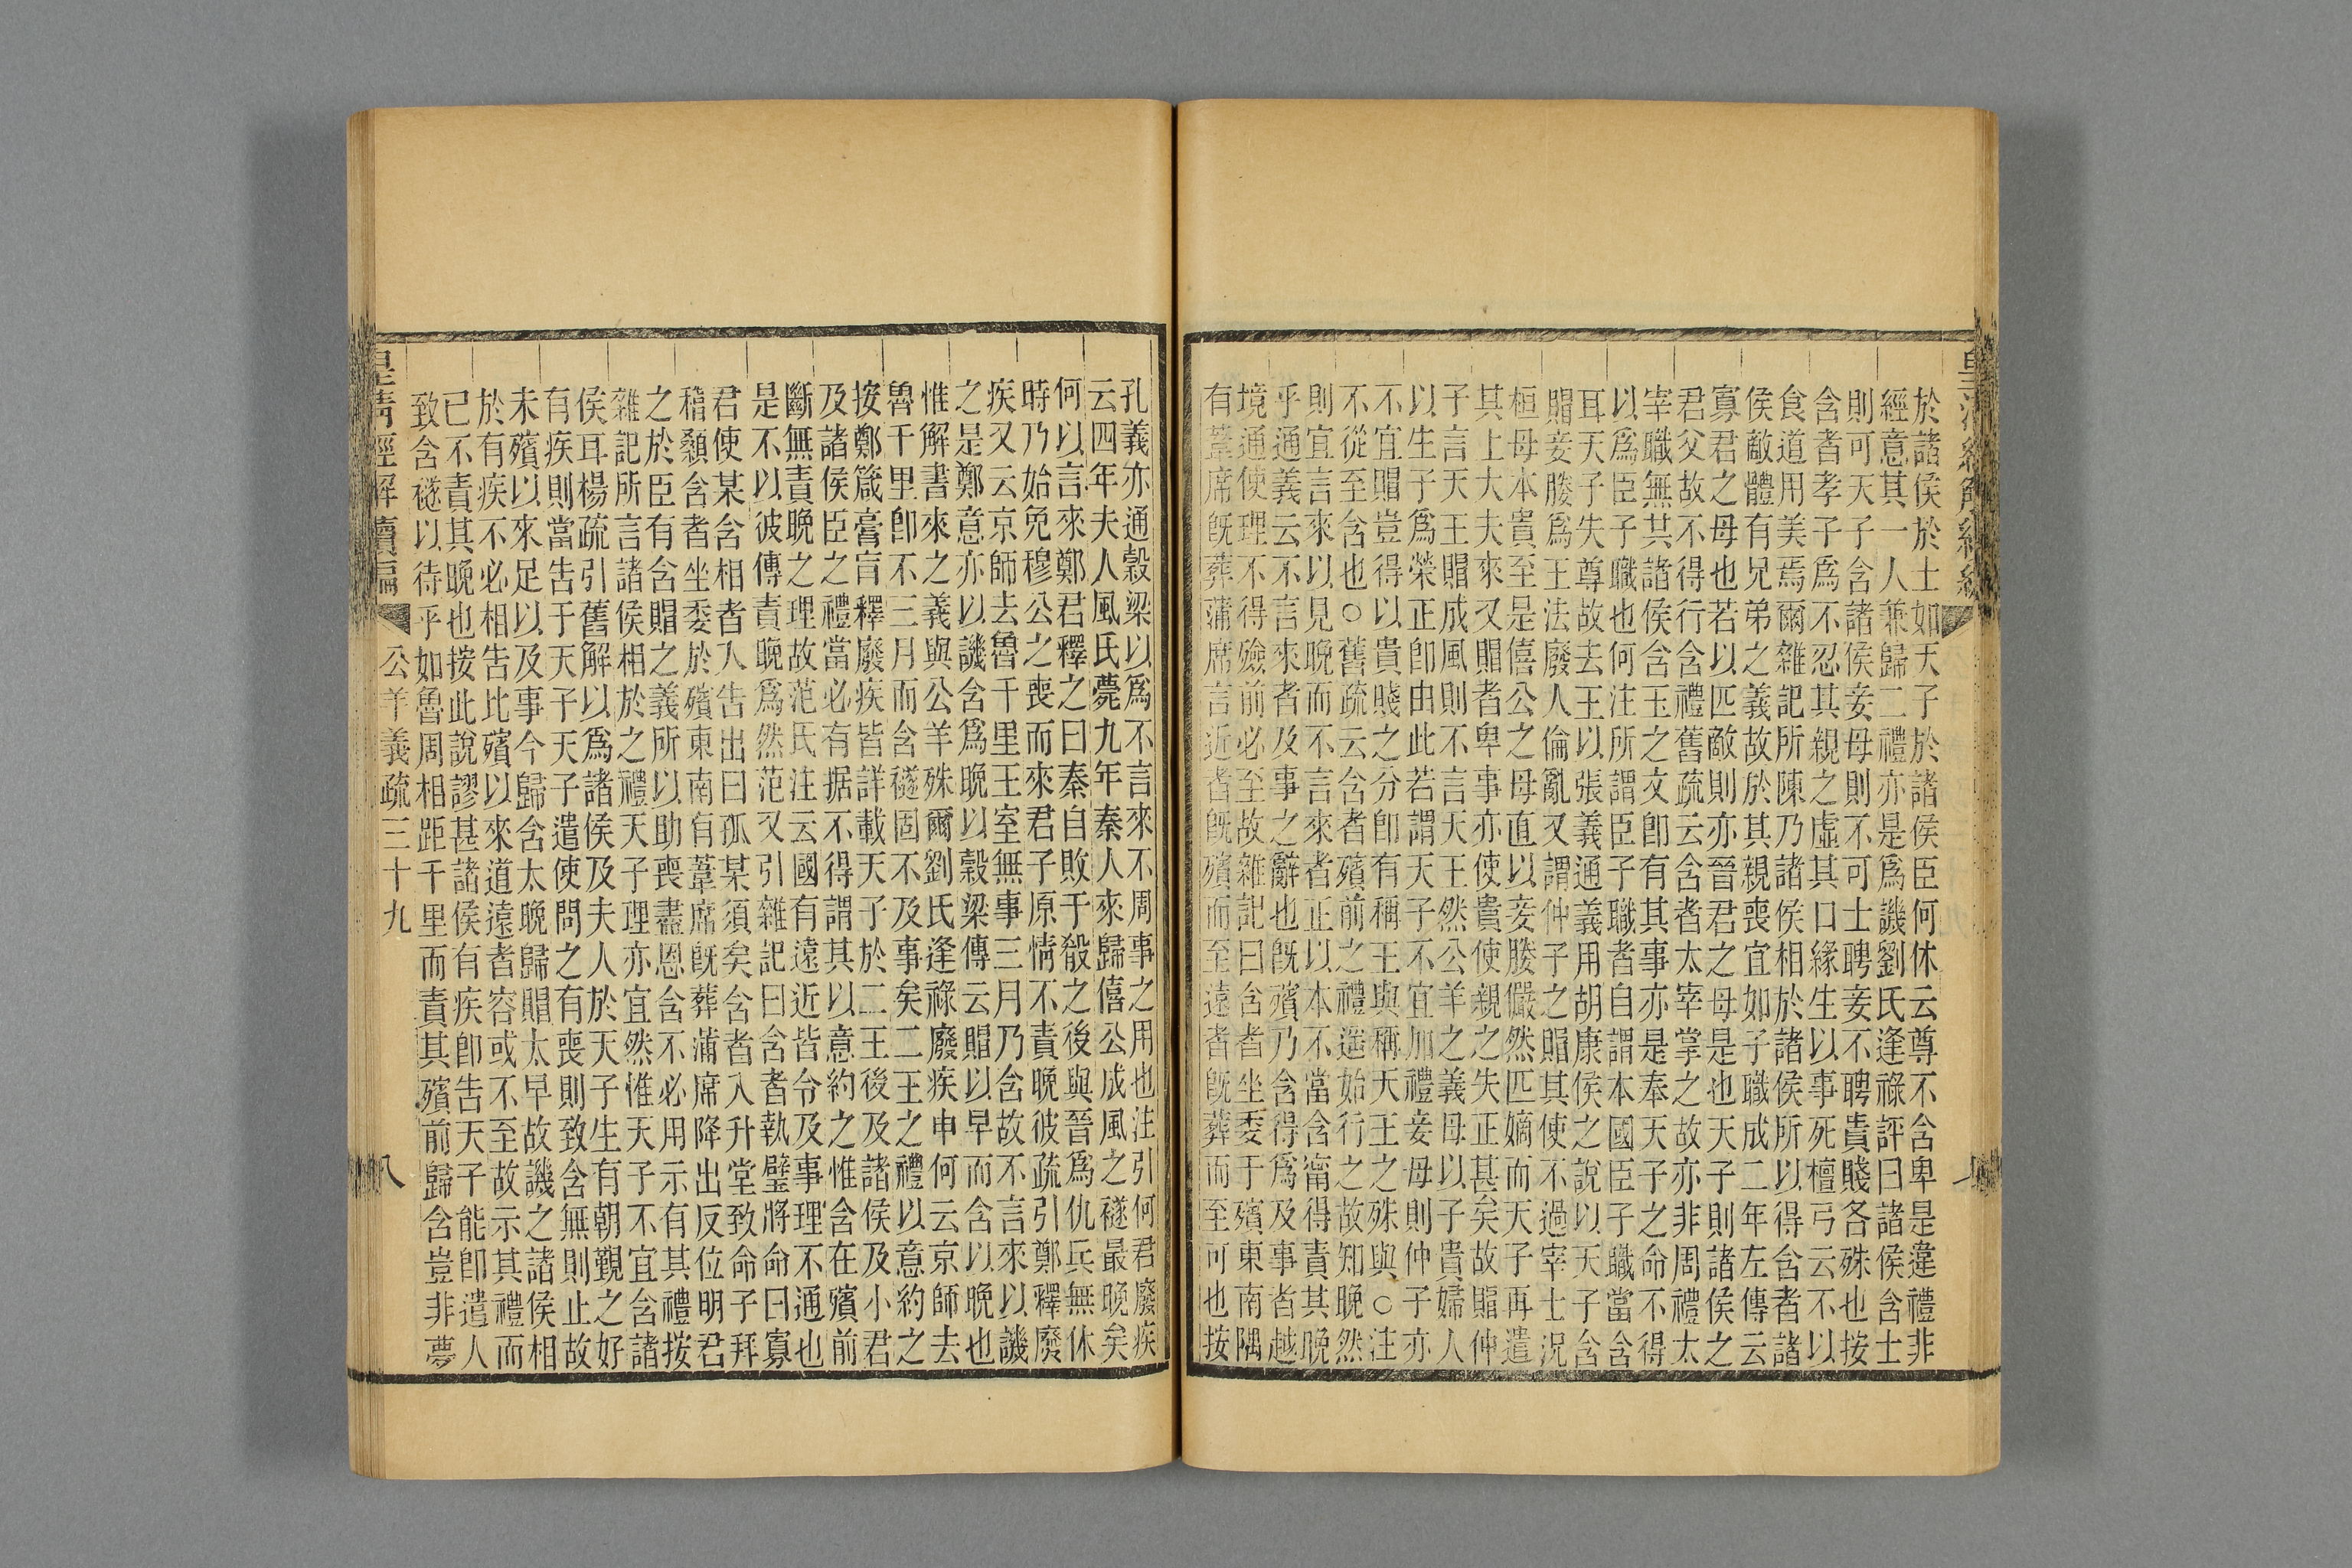 於諸侯於士如天子於諸侯臣何休云尊不含卑是違禮非
經意其一人兼歸二禮亦是爲譏劉氏逢祿評曰諸侯含士
則可天子含諸侯妾母則不可士聘妾不聘貴賤各殊也按
含者孝子爲不忍其親之虛其口緣生以事死檀弓云不以
食道用美焉爾雜記所陳乃諸侯相於諸侯所以得含者諸
侯敵體有兄弟之義故於其親喪宜如子職成二年左傳云
寡君之母也若以匹敵則亦晉君之母是也天子則諸侯之
君父故不得行含禮舊疏云含者太宰掌之故亦非周禮太
宰職無其諸侯含玉之文卽有其事亦是奉天子之命不得
以爲臣子職也何注所謂臣子職者自謂本國臣子職當含
耳天子失尊故去王以張義通義用胡康侯之說以天子含
賵妾媵爲王法廢人倫亂又謂仲子之賵其使不過宰士況
桓母本貴至是僖公之母直以妾媵儼然匹嫡而天子再遣
其上大夫來又賵者卑事亦使貴使親之失正甚矣故賵仲
子言天王賵成風則不言天王然公羊之義母以子貴婦人
以生子爲榮正卽由此若謂天子不宜加禮妾母則仲子亦
不宜賵豈得以貴賤之分卽有稱王與稱天王之殊與○注
不從至含也○舊疏云含者殯前之禮遣始行之故知晚然
則宜言來以見晚而不言來者正以本不當含甯得責其晚
乎通義云不言來者及事之辭也旣殯乃含得爲及事者越
境通使理不得殮前必至故雜記曰含者坐委于殯東南隅
有葦席旣葬蒲席言近者旣殯而至遠者旣葬而至可也按
孔義亦通穀梁以爲不言來不周事之用也注引何君廢疾
云四年夫人風氏薨九年秦人來歸僖公成風之襚最晚矣
何以言來鄭君釋之曰秦自敗于殽之後與晉爲仇兵無休
時乃始免穆公之喪而來君子原情不責晚彼疏引鄭釋廢
疾又云京師去魯千里王室無事三月乃含故不言來以譏
之是鄭意亦以譏含爲晚以穀梁傳云賵以早而含以晚也
惟解書來之義與公羊殊爾劉氏逢祿廢疾申何云京師去
魯千里卽不三月而含襚固不及事矣二王之禮以意約之
按鄭箴膏肓釋廢疾皆詳載天子於二王後及諸侯及小君
及諸侯臣之禮當必有据不得謂其以意約之惟含在殯前
斷無責晚之理故范氏注云國有遠近皆令及事理不通也
是不以彼傳責晚爲然范又引雜記曰含者執璧將命曰寡
君使某含相者入告出曰孤某須矣含者入升堂致命子拜
稽顙含者坐委於殯東南有葦席旣葬蒲席降出反位明君
之於臣有含賵之義所以助喪盡恩含不必用示有其禮按
雜記所言諸侯相於之禮天子理亦宜然惟天子不宜含諸
侯耳楊疏引舊解以爲諸侯及夫人於天子生有朝覲之好
有疾則當告于天子天子遣使問之有喪則致含無則止故
未殯以來足以及事今歸含太晚歸賵太早故譏之諸侯相
於有疾不必相告比殯以來道遠者容或不至故示其禮而
已不責其晚也按此說謬甚諸侯有疾卽告天子能卽遣人
致含襚以待乎如魯周相距千里而責其殯前歸含豈非夢
皇清經解續編
公羊義疏三十九
八